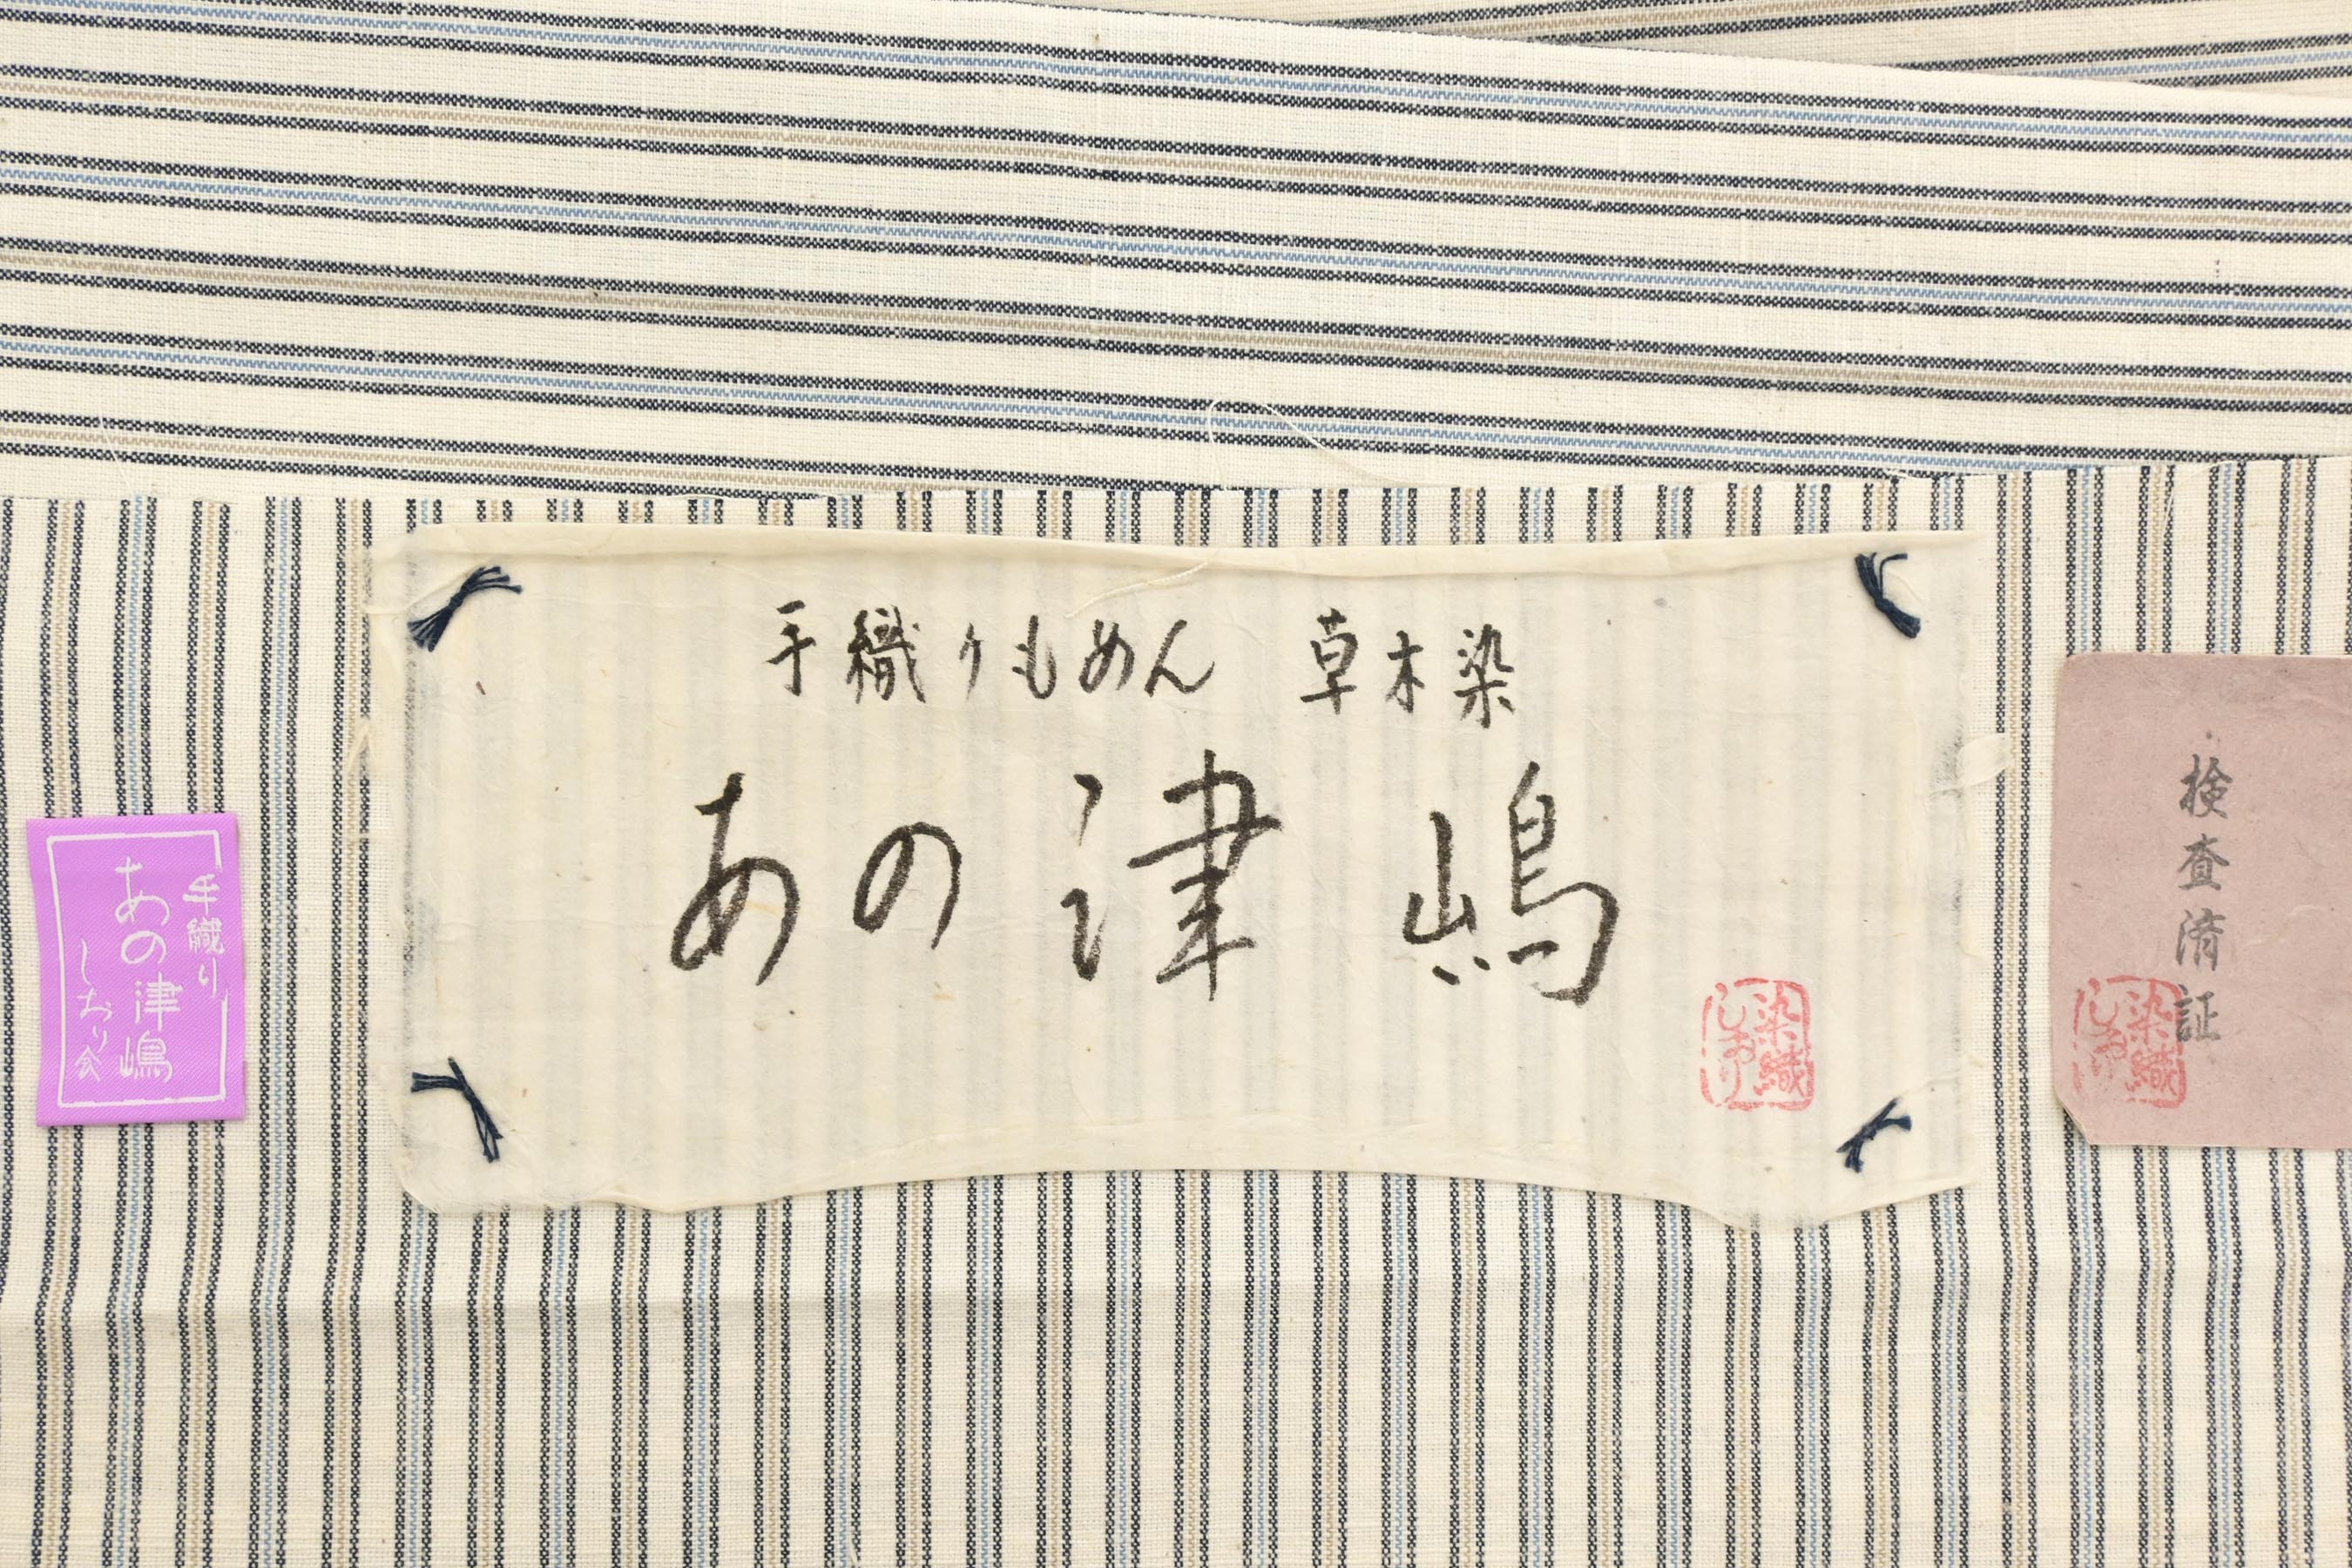 手織りもめん 草木染
あの津嶋
染織
しおり
手織り
あの津嶋
しおり会
検査済証
染織
しおり